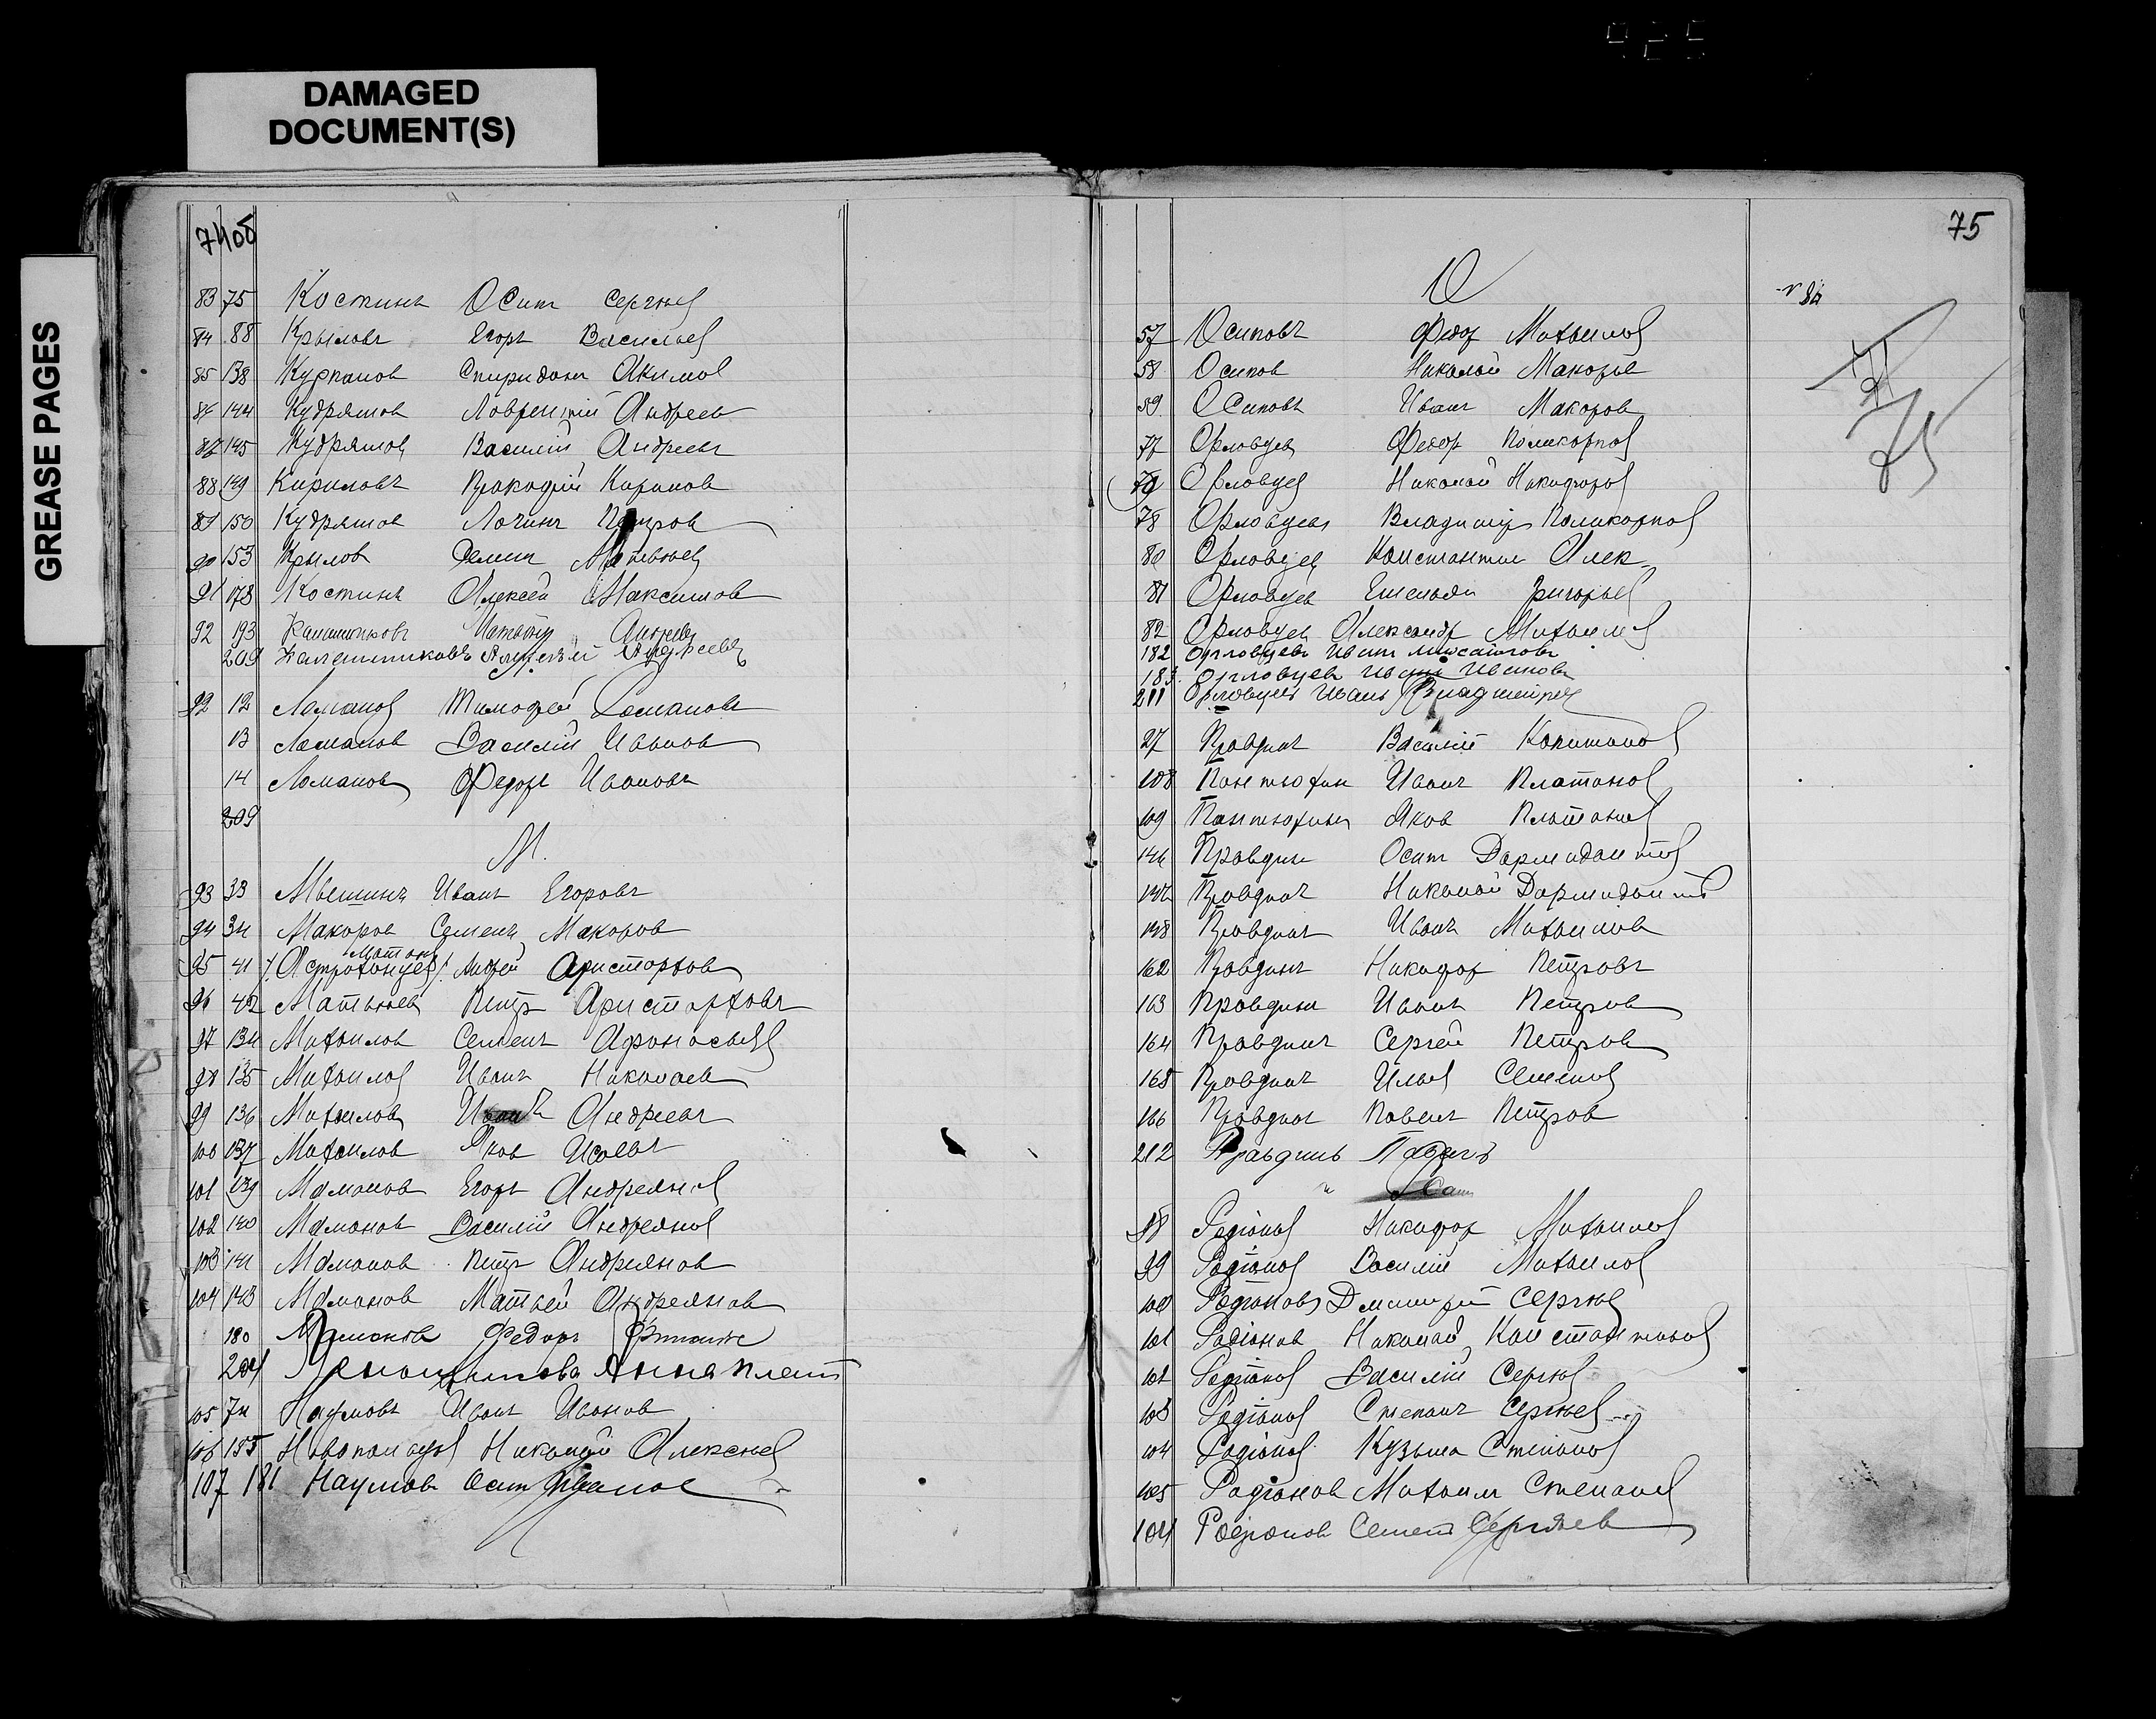 DAMAGED
DOCUMENT(S)
GREASE PAGES
74 об
83 75 Костинъ Осип Сергѣев
84 88 Крыловъ Егоръ Васильев
85 138 Курпанов Спиридонъ Акимов
86 144 Кудряшов Лаврентий Андреев
87 145 Кудряшов Василий Андреевъ
88 149 Кириловъ Прокофий Кирилов
89 150 Кудряшов Логинъ Петров
90 153 Крылов Демин Матвѣев
91 178 Костинъ Алексей Максимов
92 193 Калашников Матвѣй Андреев
209 Калашниковъ Алексѣй Андреевъ
92 12 Ломанов Тимофей Романовъ
13 Ломанов Василий Иванов
14 Ломанов Федоръ Ивановъ
209
М.
93 33 Мѣшинъ Иванъ Егоровъ
94 34 Макаров Семенъ Макаров
Матвѣев
95 41 Астраханцев Андрей Аристархов
96 42 Матвѣев Петр Аристарховъ
97 134 Михаилов Семенъ Афонасьев
98 135 Михаилов Иванъ Николаев
99 136 Михаилов Иванъ Андреевъ
100 137 Михаилов Яков Исаевъ
101 139 Маманов Егоръ Андреянов
102 140 Маманов Василий Андреянов
103 141 Маманов Петр Андреянов
104 143 Маманов Матвей Андреянов
180 Маманов Федоръ
204 Анна Плат
105 74 Наумовъ Иванъ Иванов
106 155 Николай Алексѣев
107 181 Наумов Осип Иванов
75
О
57 Осиповъ Федор Михаилов
58 Осипов Николай Макаров
59 Осиповъ Иванъ Макаров
77 Орловцев Федор Поликарпов
79 Орловцев Николай Никифоров
78 Орловцевъ Владимир Поликарпов
80 Орловцев Константин Алек
81 Орловцев Емельян Григорьев
82 Орловцев Александр Михаилов
182 Орловцевъ Иван
183 Орловцев Иван Иванов
211 Орловцевъ Иванъ Владимиров
27 Правдинъ Василий Капитонов
108 Пантюхин Иванъ Платонов
109 Пантюхинъ Яков Платонов
146 Правдин Осип Дармидонтов
147 Правдинъ Николай Дармидонтов
148 Правдинъ Иванъ Михаилов
162 Правдинъ Никифор Петровъ
163 Правдин Иванъ Петров
164 Правдинъ Сергей Петров
165 Правдинъ Илья Семенов
166 Правдинъ Павелъ Петров
212 Правдинъ Павелъ
98 Радіонов Никифор Михаилов
99 Радіонов Василий Михаилов
100 Радіоновъ Дмитрий Сергѣев
101 Радіонов Николай Константинов
102 Радіонов Василий Сергѣев
103 Радіонов Степанъ Сергѣев
104 Радіонов Кузьма Степанов
105 Радіонов Михаил Степанов
104 Радіонов Семен Сергѣев